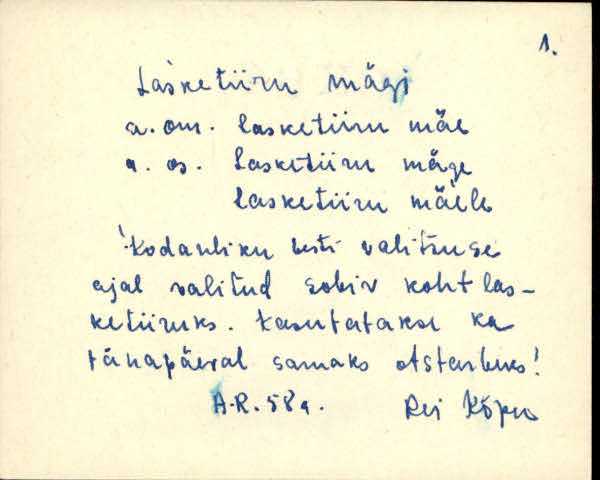 1.
Lasketiiru mägi
a. om. lasketiiru mäe
a. os. lasketiiru mäge
lasketiiru mäele
'Kodanliku Eesti valitsuse
ajal valitud sobiv koht las-
ketiiruks. Kasutatakse ka
tänapäeval samaks otstarbeks!
A.R. 58 a. Rei Kõpu